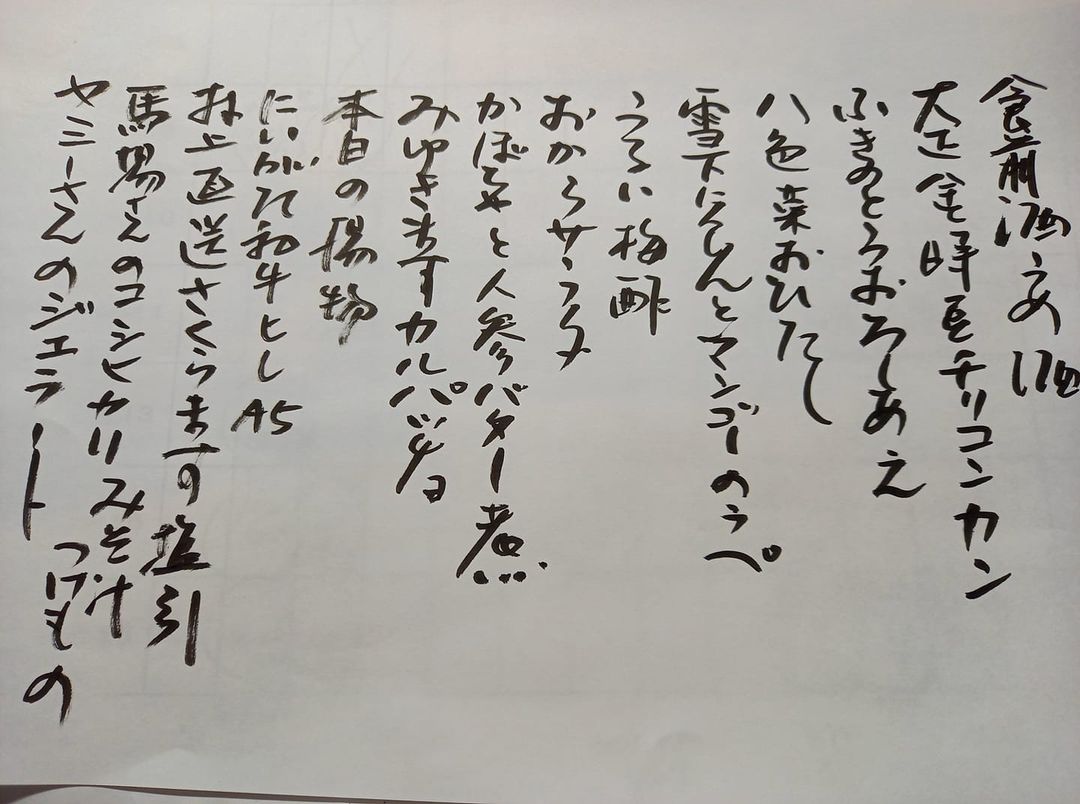 食前酒 うめ酒
大正金時豆チリコンカン
ふきのとうおろしあえ
八色菜おひたし
雪下にんじんとマンゴーのラペ
うるい梅酢
おからサラダ
かぼちゃと人参バター煮
みゆきますカルパッチョ
本日の揚物
にいがた和牛ヒレA5
村上直送さくらます塩引
馬場さんのコシヒカリみそ汁
つけもの
ヤミーさんのジェラート